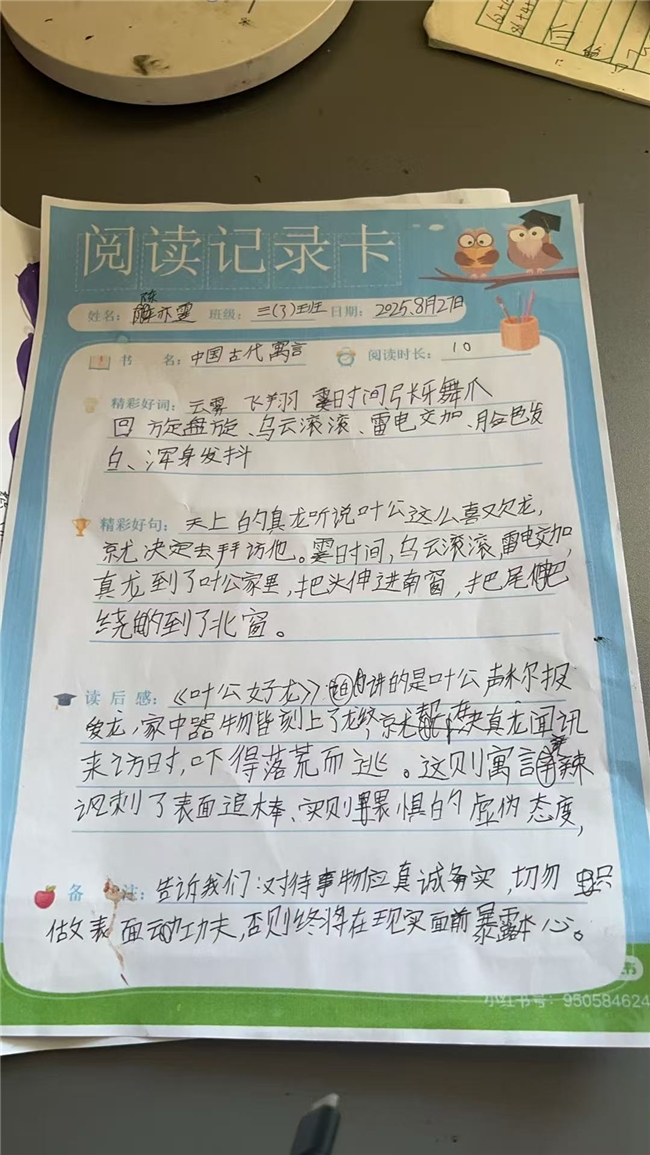 阅读记录卡
姓名：陈亦雯 班级：三（3）班 日期：2025.8月27日
书 名：中国古代寓言 阅读时长：10
精彩好词：云雾 飞翔 霎时间 张牙舞爪
回旋盘旋、乌云滚滚、雷电交加、脸色发
白、浑身发抖
精彩好句：天上的真龙听说叶公这么喜欢龙，
就决定去拜访他。霎时间，乌云滚滚，雷电交加，
真龙到了叶公家里，把头伸进南窗，把尾巴
绕到了北窗。
读后感：《叶公好龙》讲的是叶公声称
爱龙，家中器物皆刻上了龙纹，真龙闻讯
来访时，吓得落荒而逃。这则寓言辛辣
讽刺了表面追棒、实则畏惧的虚伪态度，
备 注：告诉我们：对待事物应真诚务实，切勿只
做表面功夫，否则终将在现实面前暴露本心。
小红书号：950584624